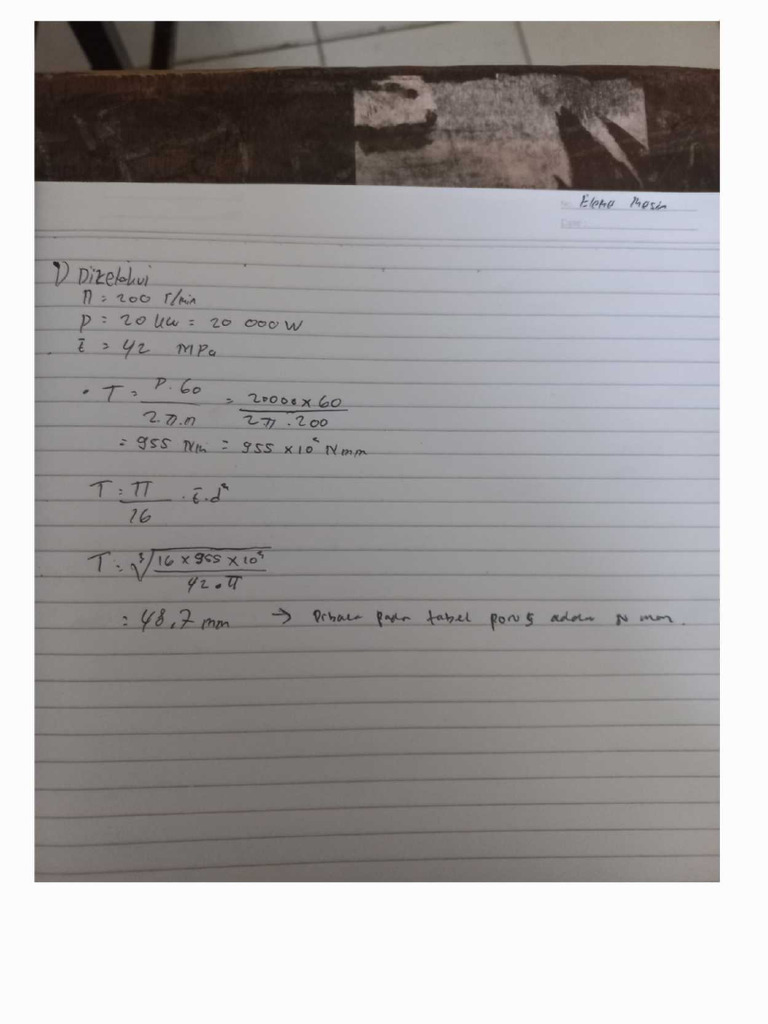 Elemen Mesin
1) Diketahui
n = 200 r/min
P = 20 kW = 20 000 W
τ = 42 MPa
• T = P.60 / 2.π.n = 20000 x 60 / 2π.200
= 955 Nm = 955 x 10³ Nmm
T = π/16 . τ.d³
T = ³√(16 x 955 x 10³ / 42.π)
= 48,7 mm → Dibaca pada tabel poros adalah mm.